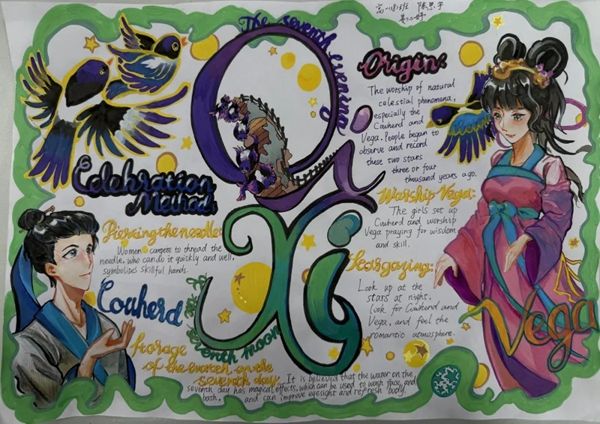 The seventh evening
Qi
Xi
Origin:
The worship of natural
celestial phenomena,
especially the
Cowherd and
Vega. People began to
observe and record
these two stars
three or four
thousand years ago.
Worship Vega:
The girls set up
Cowherd and worship
Vega praying for wisdom
and skill.
Stargazing:
Look up at the
stars at night.
look for Cowherd and
Vega, and feel the
romantic atmosphere.
Vega
Celebration
Method
Piercing the needle:
Women compete to thread the
needle, who can do it quickly and well,
symbolizes skillful hands.
Cowherd
seventh moon
of the water on the
seventh day
It is believed that the water on the
seventh day has magical effects, which can be used to wash face, and
bath, and can improve eyesight and refresh body.